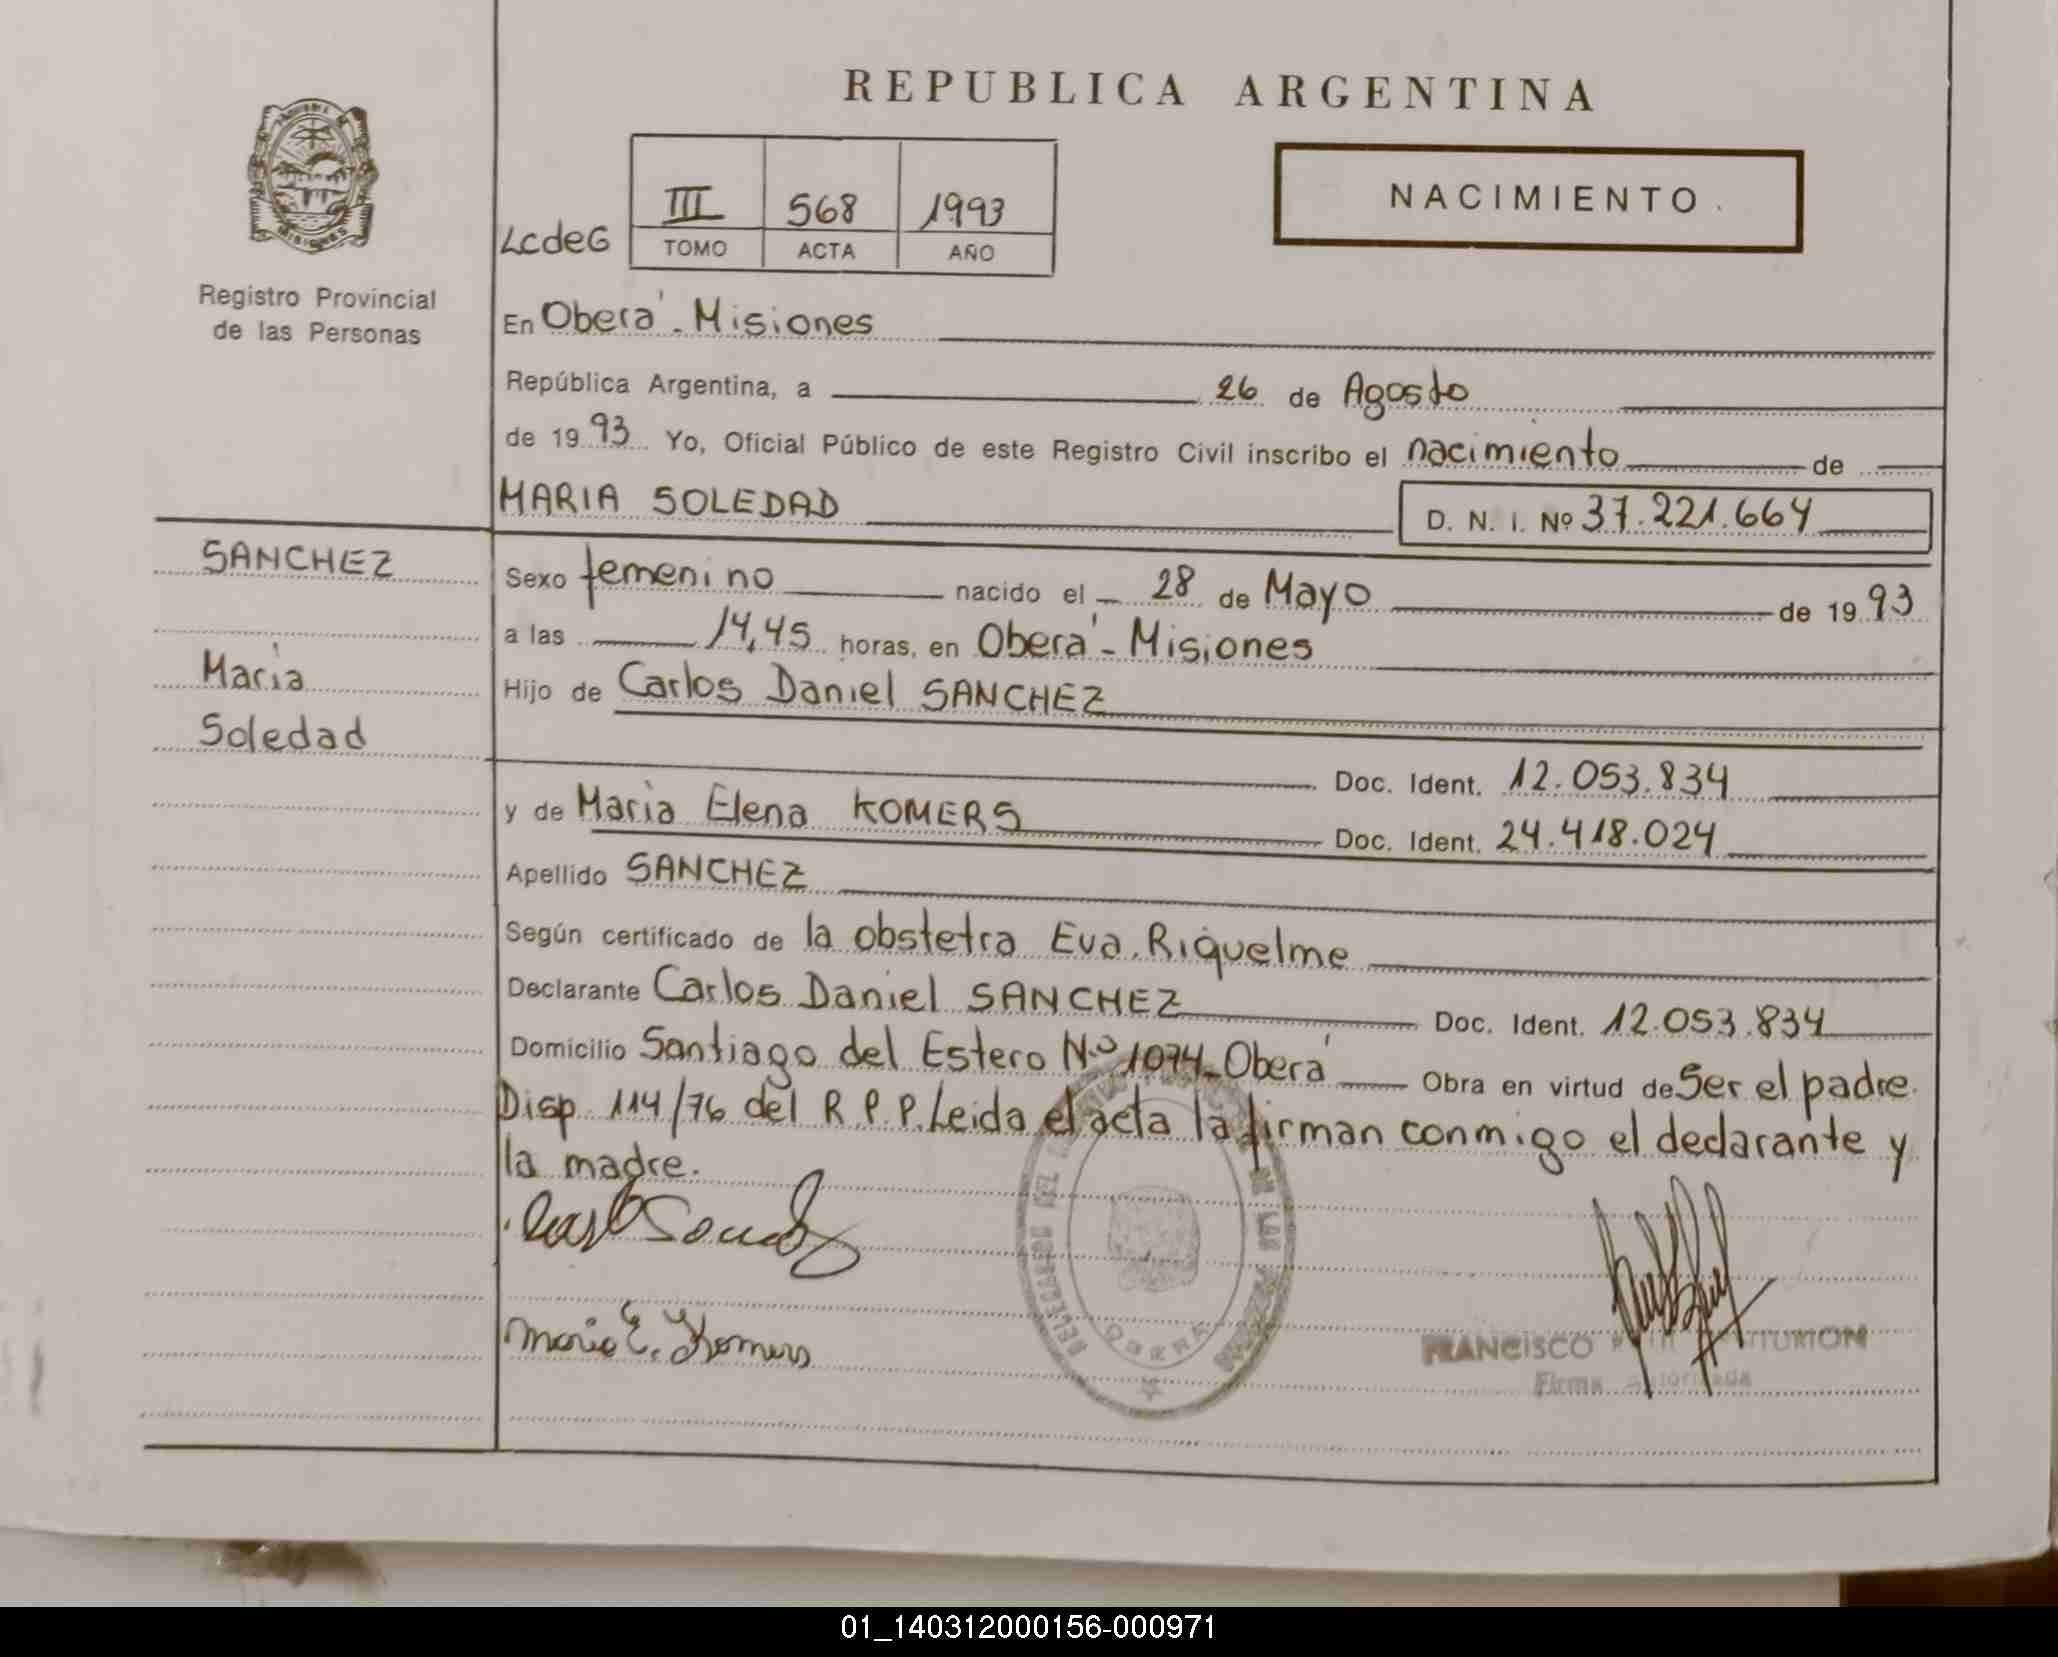 REPUBLICA ARGENTINA
NACIMIENTO
LcdeG III 568 1993
TOMO ACTA AÑO
MISIONES
Registro Provincial
de las Personas
En Oberá - Misiones
República Argentina, a 26 de Agosto
de 19 93 Yo, Oficial Público de este Registro Civil inscribo el nacimiento de
MARIA SOLEDAD D. N. I. Nº 37.221.664
SANCHEZ
Maria
Soledad
Sexo femenino nacido el 28 de Mayo de 19 93
a las 14,45 horas, en Oberá - Misiones
Hijo de Carlos Daniel SANCHEZ
Doc. Ident. 12.053.834
y de Maria Elena KOMERS Doc. Ident. 24.418.024
Apellido SANCHEZ
Según certificado de la obstetra Eva Riquelme
Declarante Carlos Daniel SANCHEZ Doc. Ident. 12.053.834
Domicilio Santiago del Estero N.º 1074 - Oberá Obra en virtud de Ser el padre.
Disp. 114/76 del R.P.P. Leida el acta la firman conmigo el declarante y
la madre.
Maria E. Komers
OBERA
FRANCISCO
Firma Autorizada
01_140312000156-000971